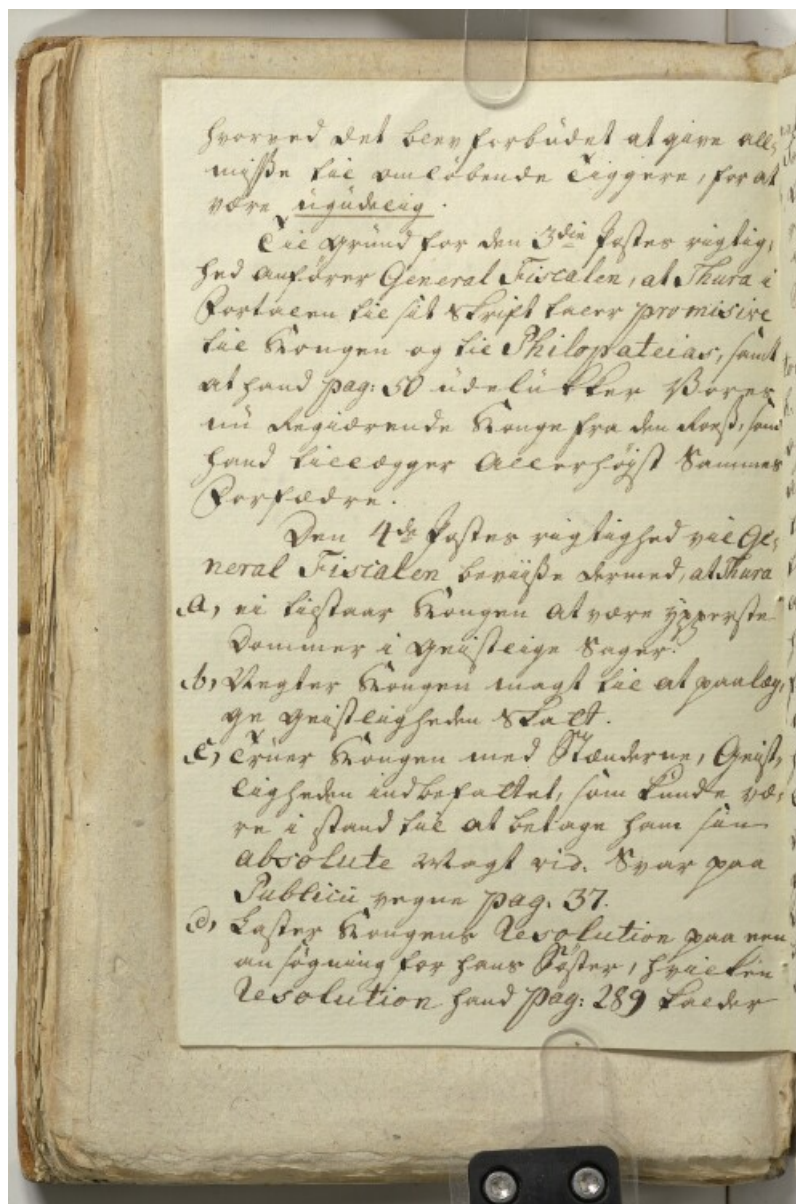 hvorved det blev forbudet at give all,
misse til omløbende Tiggere, for at
være ugudelig.
Til Grund for den 3die Postes rigtig,
hed anfører General Fiscalen, at Thura i
Fortalen til sit Skrift taler promisive
til Kongen og til Philopateias, samt
at hand pag: 50 udelukker Vores
nu Regiærende Konge fra den Roes, som
hand tillægger Allerhøjst Sammes
Forfædre.
Den 4de Postes rigtighed vil Ge,
neral Fiscalen beviise dermed, at Thura
a, ei tilstaar Kongen at være ypperste
Dommer i Geistlige Sager.
b, Negter Kongen magt til at paalæg,
ge Geistligheden Skatt.
c, Truer Kongen med Stænderne, Geist,
ligheden indbefattet, som kunde væ,
re i stand til at betage ham sin
absolute Magt vid. Svar paa
Publici vegne pag. 37.
d, Laster Kongens Resolution paa een
ansøgning for hans Søster, hvilken
Resolution hand pag: 289 kalder